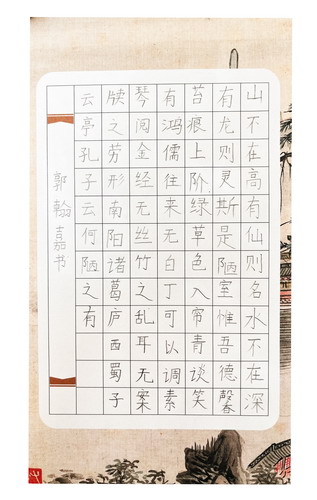 山不在高有仙则名水不在深
有龙则灵斯是陋室惟吾德馨
苔痕上阶绿草色入帘青谈笑
有鸿儒往来无白丁可以调素
琴阅金经无丝竹之乱耳无案
牍之劳形南阳诸葛庐西蜀子
云亭孔子云何陋之有
郭翰嘉书